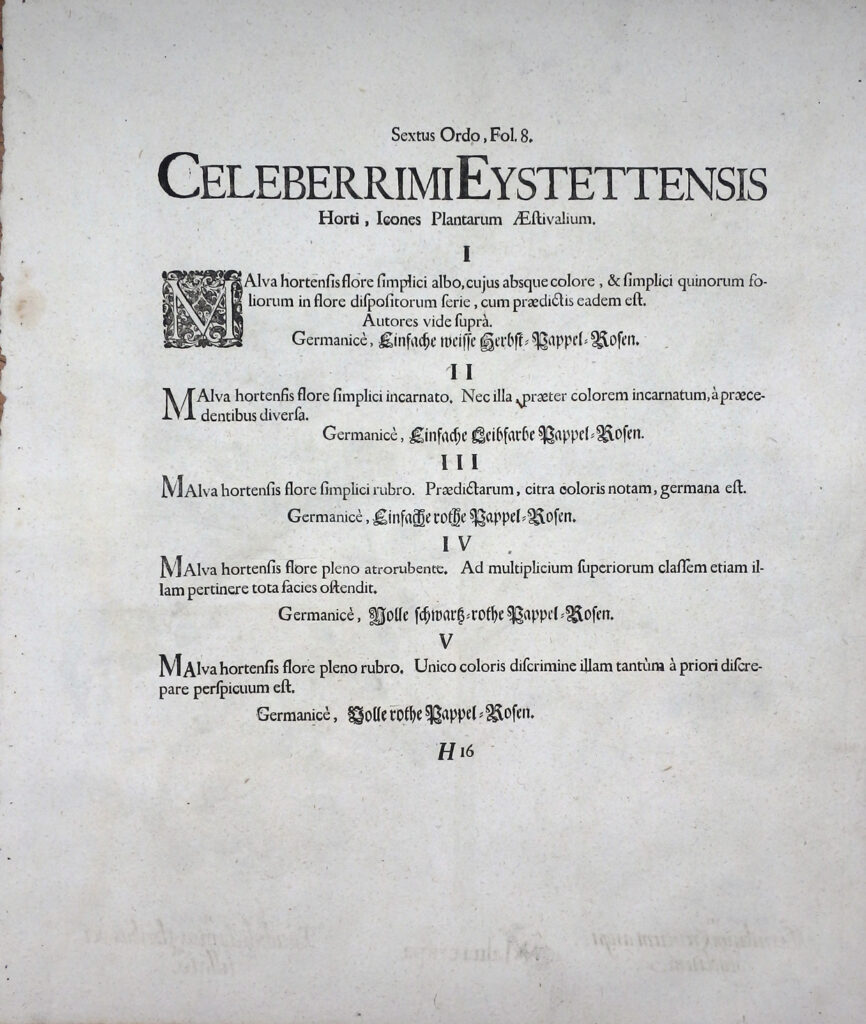 Sextus Ordo, Fol. 8.
CELEBERRIMI EYSTETTENSIS
Horti, Icones Plantarum Æſtivalium.
I
MAlva hortenſis flore ſimplici albo, cujus absque colore, & ſimplici quinorum fo-
liorum in flore diſpoſitorum ſerie, cum prædictis eadem eſt.
Autores vide ſuprà.
Germanicè, Einfache weiſſe Herbſt-Pappel-Roſen.
II
MAlva hortenſis flore ſimplici incarnato. Nec illa præter colorem incarnatum, à præce-
dentibus diverſa.
Germanicè, Einfache Leibfarbe Pappel-Roſen.
III
MAlva hortenſis flore ſimplici rubro. Prædictarum, citra coloris notam, germana eſt.
Germanicè, Einfache rothe Pappel-Roſen.
IV
MAlva hortenſis flore pleno atrorubente. Ad multiplicium ſuperiorum claſſem etiam il-
lam pertinere tota facies oſtendit.
Germanicè, Volle ſchwartz-rothe Pappel-Roſen.
V
MAlva hortenſis flore pleno rubro. Unico coloris diſcrimine illam tantùm à priori diſcre-
pare perſpicuum eſt.
Germanicè, Volle rothe Pappel-Roſen.
H 16